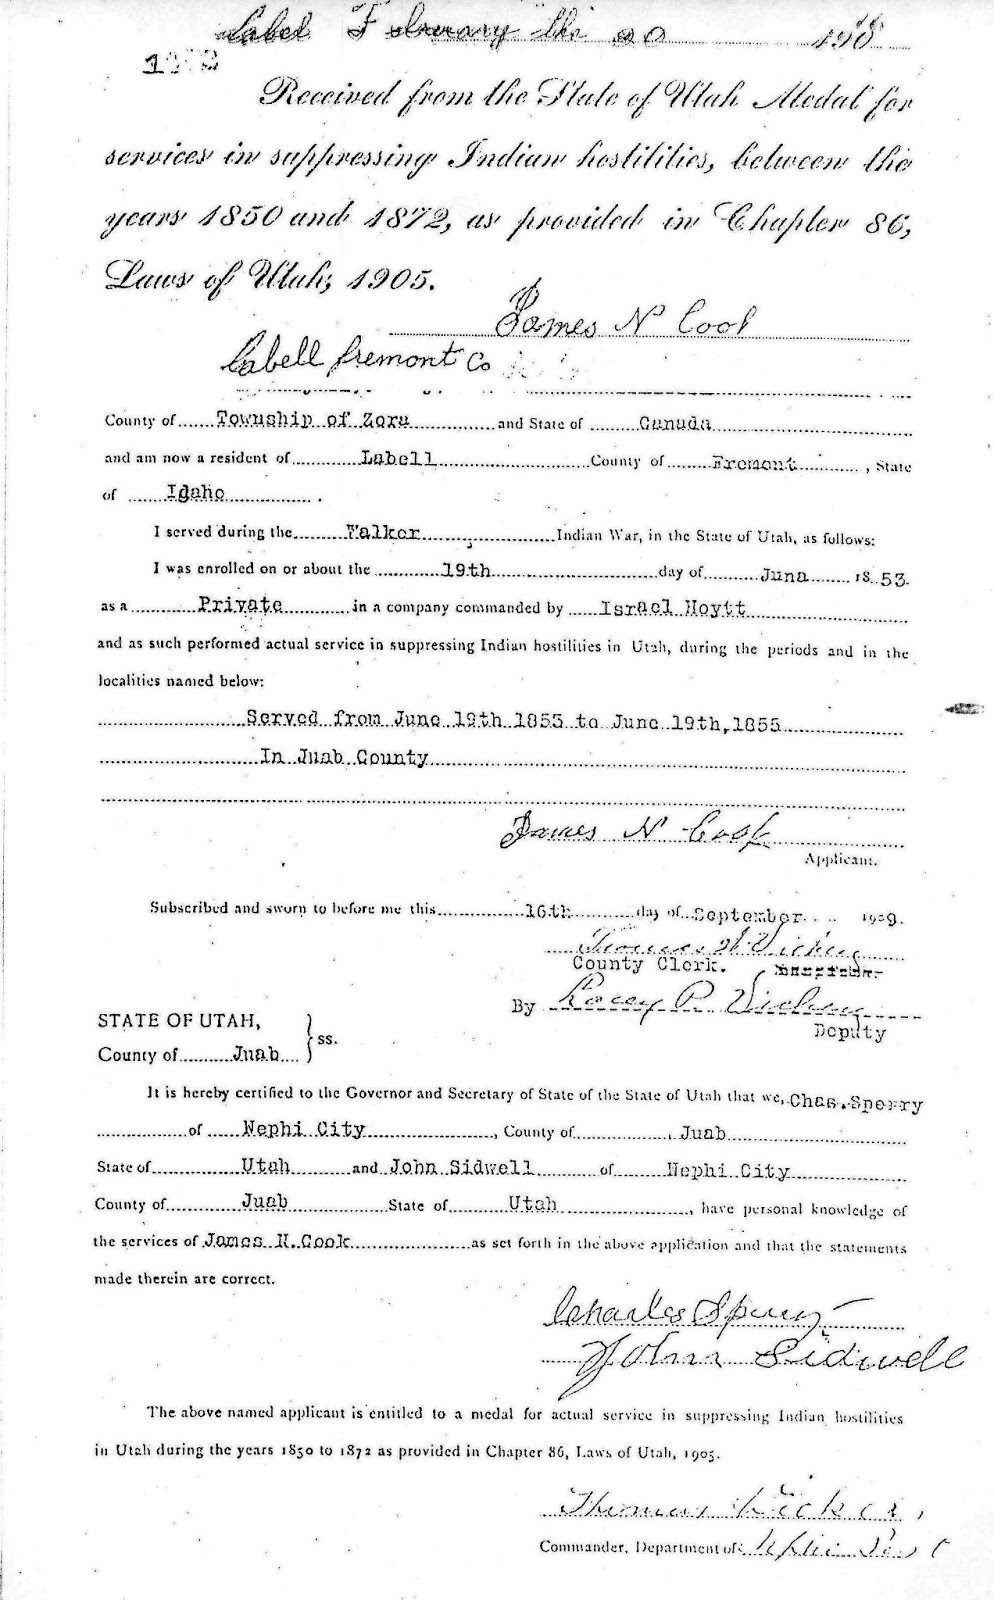 Label February the 20 190
Received from the State of Utah Medal for
services in suppressing Indian hostilities, between the
years 1850 and 1872, as provided in Chapter 86,
Laws of Utah, 1905.
James N Cook
Labell Fremont Co
County of Township of Zora and State of Canada
and am now a resident of Labell County of Fremont, State
of Idaho.
I served during the Walker Indian War, in the State of Utah, as follows:
I was enrolled on or about the 19th day of June 1853.
as a Private in a company commanded by Israel Hoytt
and as such performed actual service in suppressing Indian hostilities in Utah, during the periods and in the
localities named below:
Served from June 19th 1853 to June 19th, 1855
In Juab County
James N Cook
Applicant.
Subscribed and sworn to before me this 16th day of September 1909.
Thomas Vickers
County Clerk.
By Lacey P. Vickers
Deputy
STATE OF UTAH, } ss.
County of Juab
It is hereby certified to the Governor and Secretary of State of the State of Utah that we, Chas. Sperry
of Nephi City, County of Juab
State of Utah and John Sidwell of Nephi City
County of Juab State of Utah, have personal knowledge of
the services of James N. Cook as set forth in the above application and that the statements
made therein are correct.
Charles Sperry
John Sidwell
The above named applicant is entitled to a medal for actual service in suppressing Indian hostilities
in Utah during the years 1850 to 1872 as provided in Chapter 86, Laws of Utah, 1905.
Thomas Vickers
Commander, Department of Nephi Post